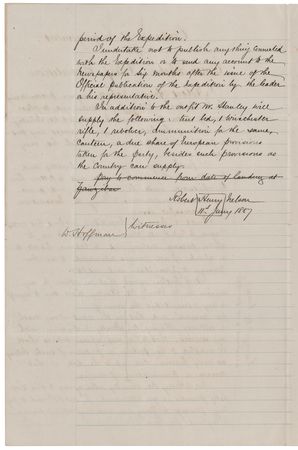 period of the Expedition.
I undertake not to publish anything connected
with the Expedition or to send any account to the
Newspapers for six months after the issue of the
Official publication of the Expedition by the leader
or his representative.
In addition to the outfit Mr Stanley will
supply the following: tent bed, 1 Winchester
rifle, 1 revolver, ammunition for the same,
Canteen, a due share of European provisions
taken for the party, besides such provisions as
the Country can supply.
pay to commence from date of landing at
Zanzibar
Robert Henry Nelson
11th Jany 1887
W. Hoffman } Witness